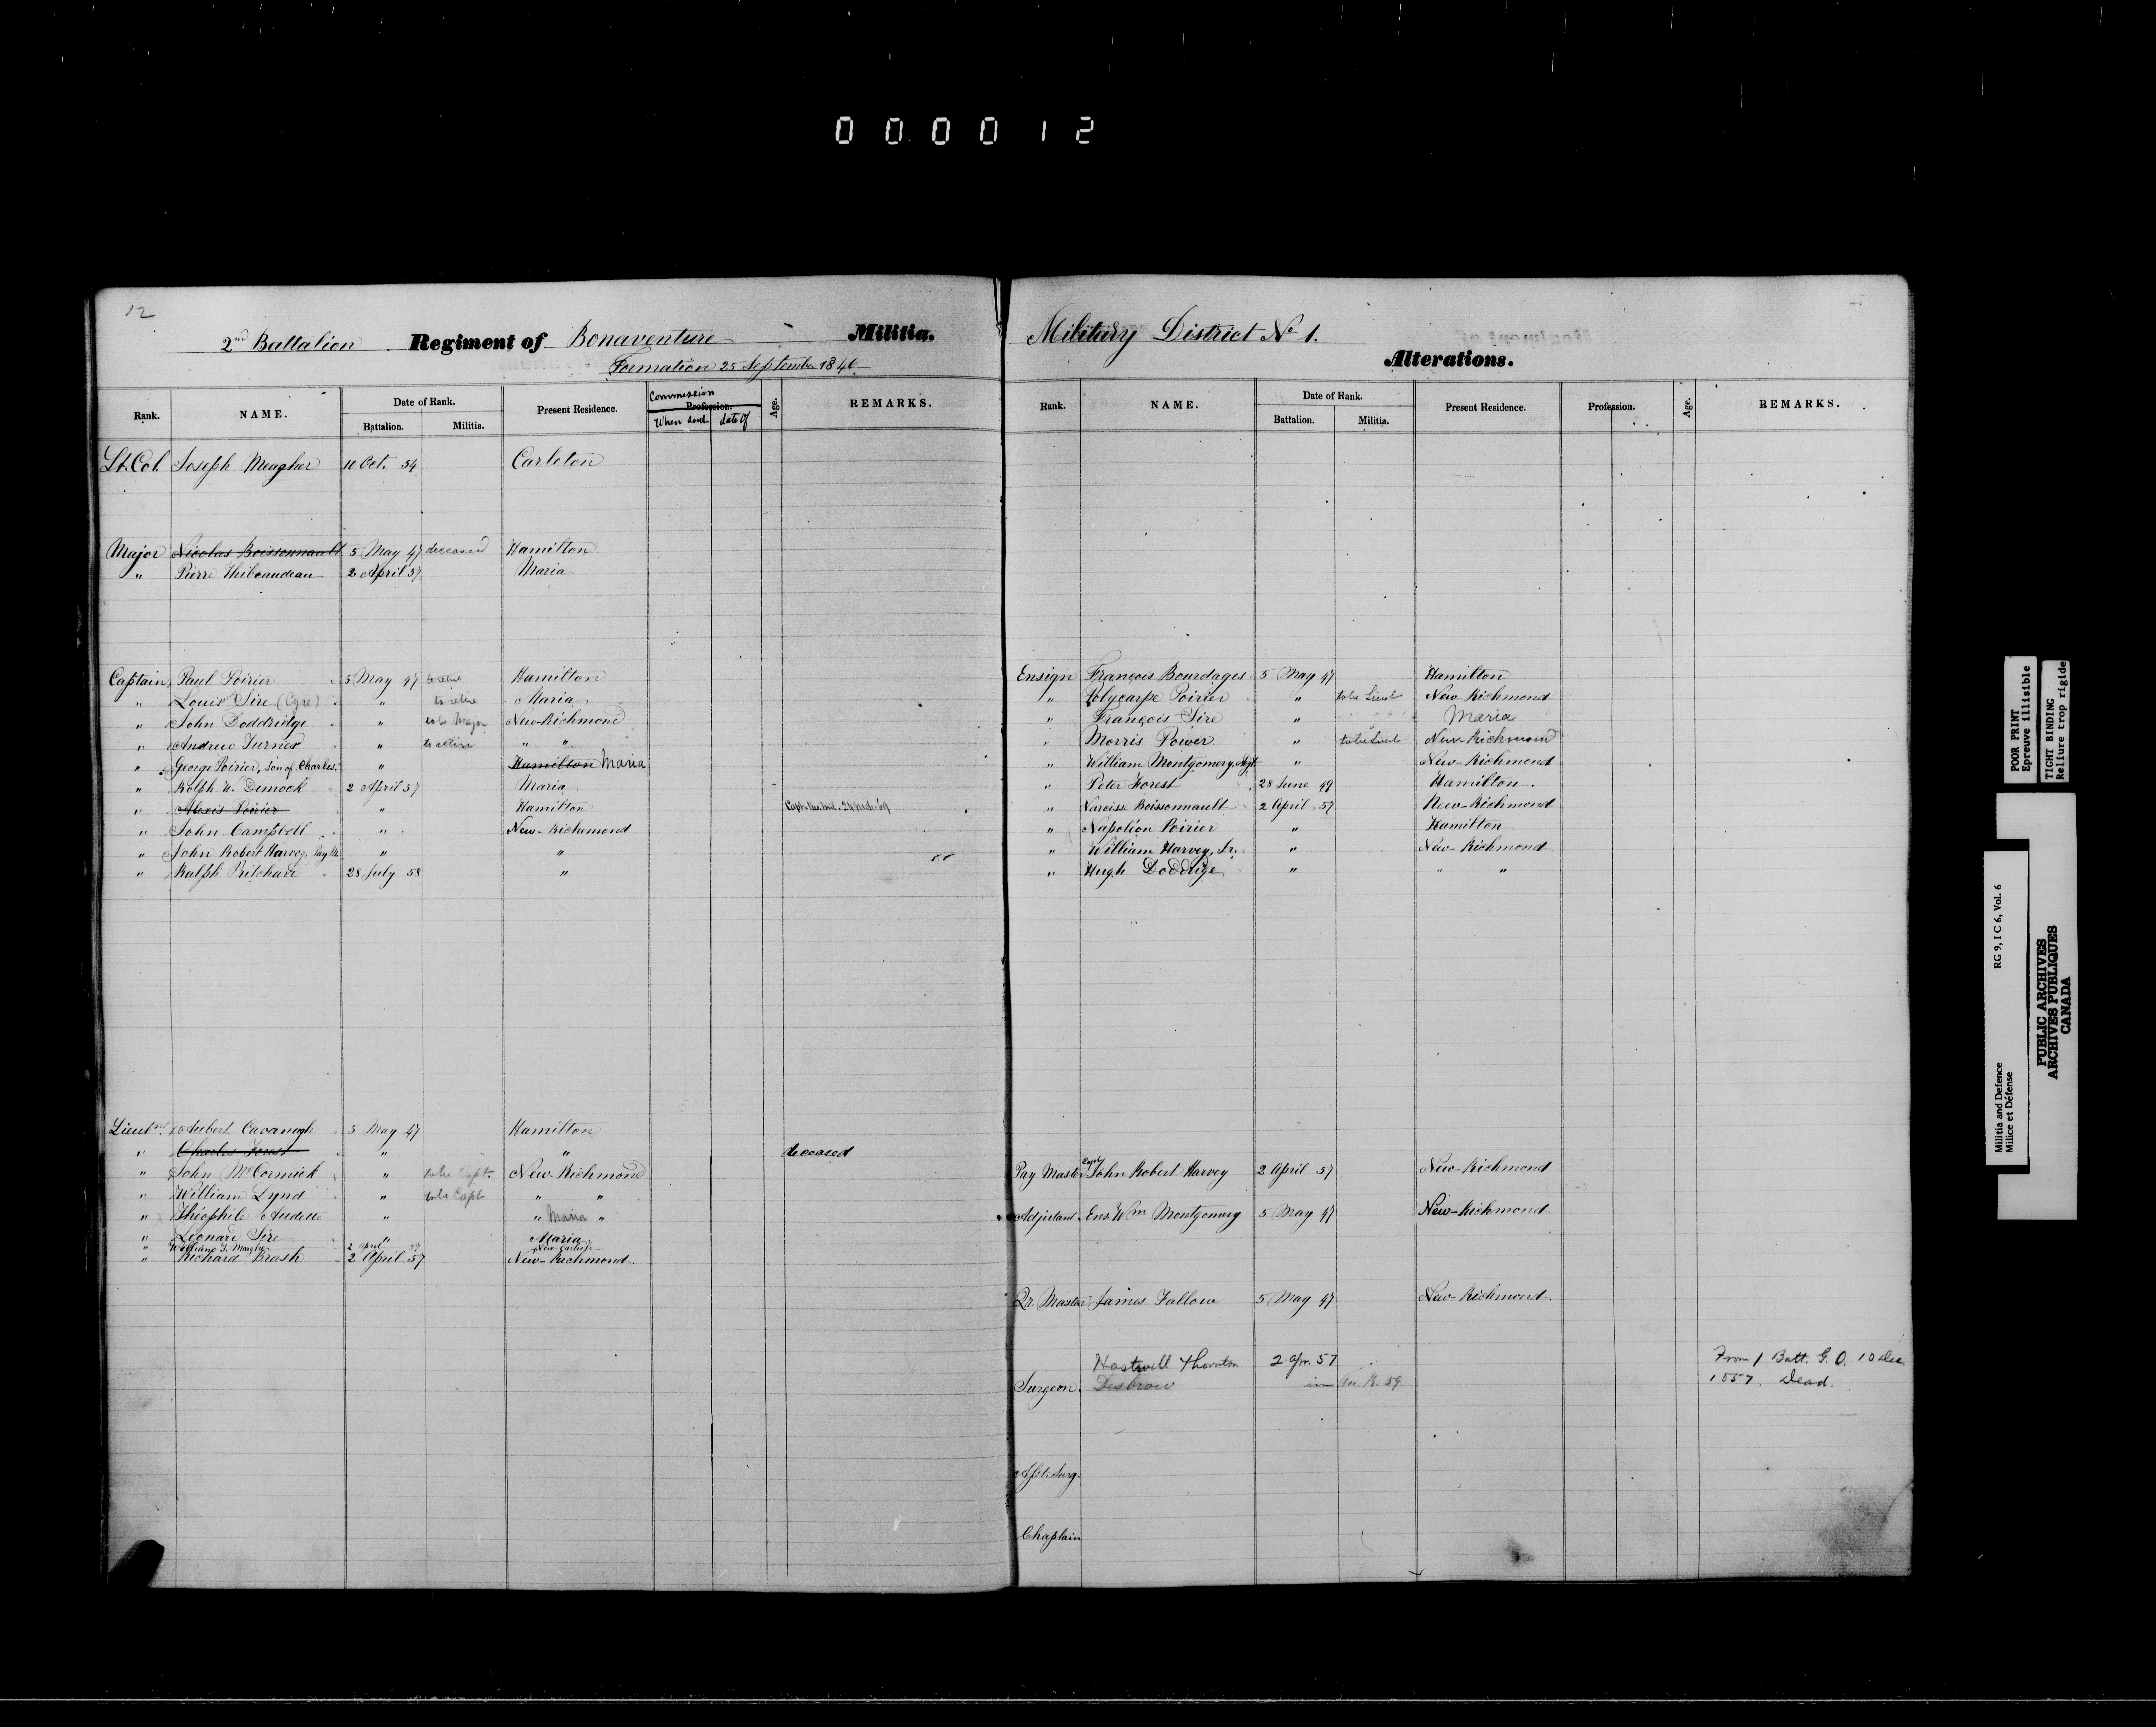 000012
12
2nd Battalion Regiment of Bonaventure Militia.
Formation 25 September 1846
Rank. NAME. Date of Rank. Battalion. Militia. Present Residence. Commission Profession. When sent. date of Age. REMARKS.
Lt. Col. Joseph Meagher 10 Oct. 54 Carleton
Major Nicolas Boissonnault 5 May 47 deceased Hamilton
" Pierre Thibeaudeau 2 April 57 Maria
Captain Paul Poirier 5 May 47 to retire Hamilton
" Louis Sire (Cyre) " to retire Maria
" John Doddridge " to be Major New-Richmond
" Andrew " to retire " "
" George Poirier, son of Charles. " Hamilton Maria
" Ralph W. Dimock 2 April 57 Maria
" Alexis Poirier " Hamilton
" John Campbell " New-Richmond
" John Robert Harvey, Pay M. " "
" Ralph Pritchard 28 July 58 "
Lieutnt. Aubert Cavanagh 5 May 47 Hamilton
" Charles Forest " " deceased
" John McCormick " to be Capt. New-Richmond
" William Lynd " to be Capt " "
" Théophile Audette " " Maria "
" Léonard Sire " Maria
" William J. 2 April 57 New Carlisle
" Richard Brash 2 April 57 New-Richmond
Military District No 1.
Alterations.
Rank. NAME. Date of Rank. Battalion. Militia. Present Residence. Profession. Age. REMARKS.
Ensign François Bourdages 5 May 47 Hamilton
" Polycarpe Poirier " to be Lieut New-Richmond
" François Sire " Maria
" Morris Power " to be Lieut New-Richmond
" William Montgomery, Adjt. " New-Richmond
" Peter Forest 28 June 49 Hamilton
" Narcisse Boissonnault 2 April 57 New-Richmond
" Napoléon Poirier " Hamilton
" William Harvey, Jr. " New-Richmond
" Hugh Doddrige " " "
Pay Master Capt John Robert Harvey 2 April 57 New-Richmond
Adjutant. Ens. Wm Montgomery 5 May 47 New-Richmond
Qr. Master James Fallow 5 May 47 New-Richmond
Hastwell Thornton 2 Apr. 57 From 1 Batt. G. O. 10 Dec
Surgeon. Desbrow in 59 1857. Dead.
Asst. Surg.
Chaplain
POOR PRINT
Epreuve illisible
TIGHT BINDING
Reliure trop rigide
Militia and Defence RG 9, I C 6, Vol. 6
Milice et Défense
PUBLIC ARCHIVES
ARCHIVES PUBLIQUES
CANADA